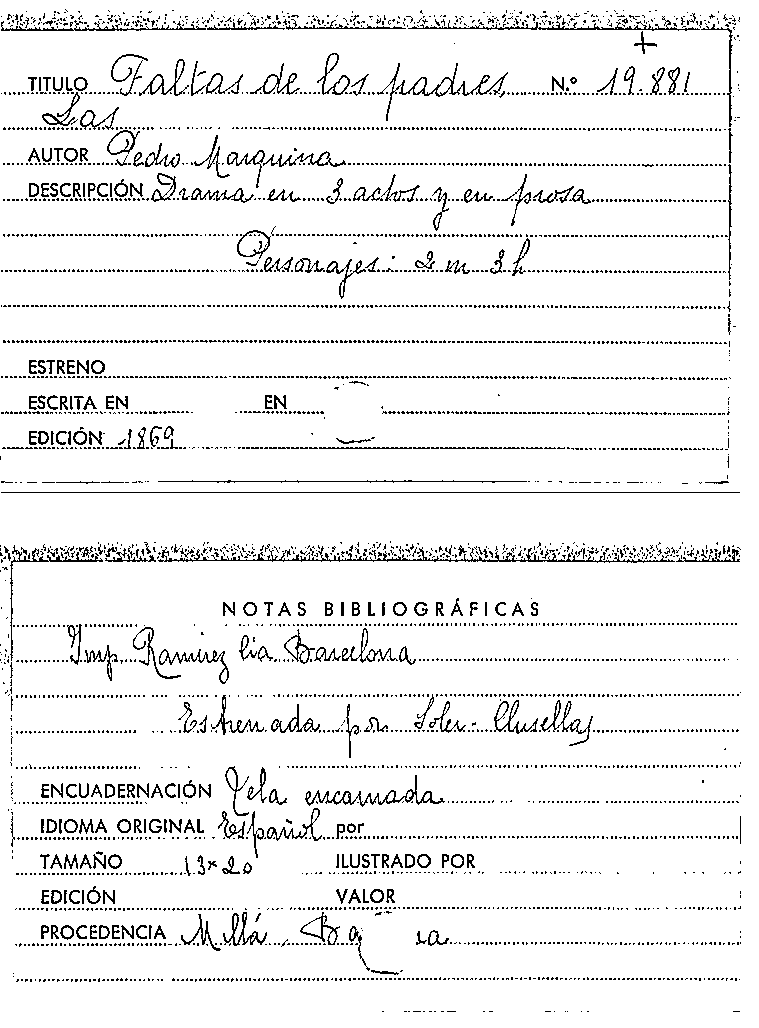 +
TITULO Faltas de los padres, N.º 19.881
Las
AUTOR Pedro Marquina
DESCRIPCIÓN Drama en 3 actos y en prosa
Personajes: 2 m 3 h
ESTRENO
ESCRITA EN EN
EDICIÓN 1869
NOTAS BIBLIOGRÁFICAS
Imp. Ramirez Cia Barcelona
Estrenada por Soler-Clusellas
ENCUADERNACIÓN Tela encarnada
IDIOMA ORIGINAL Español por
TAMAÑO 13 x 20 ILUSTRADO POR
EDICIÓN VALOR
PROCEDENCIA Millá,